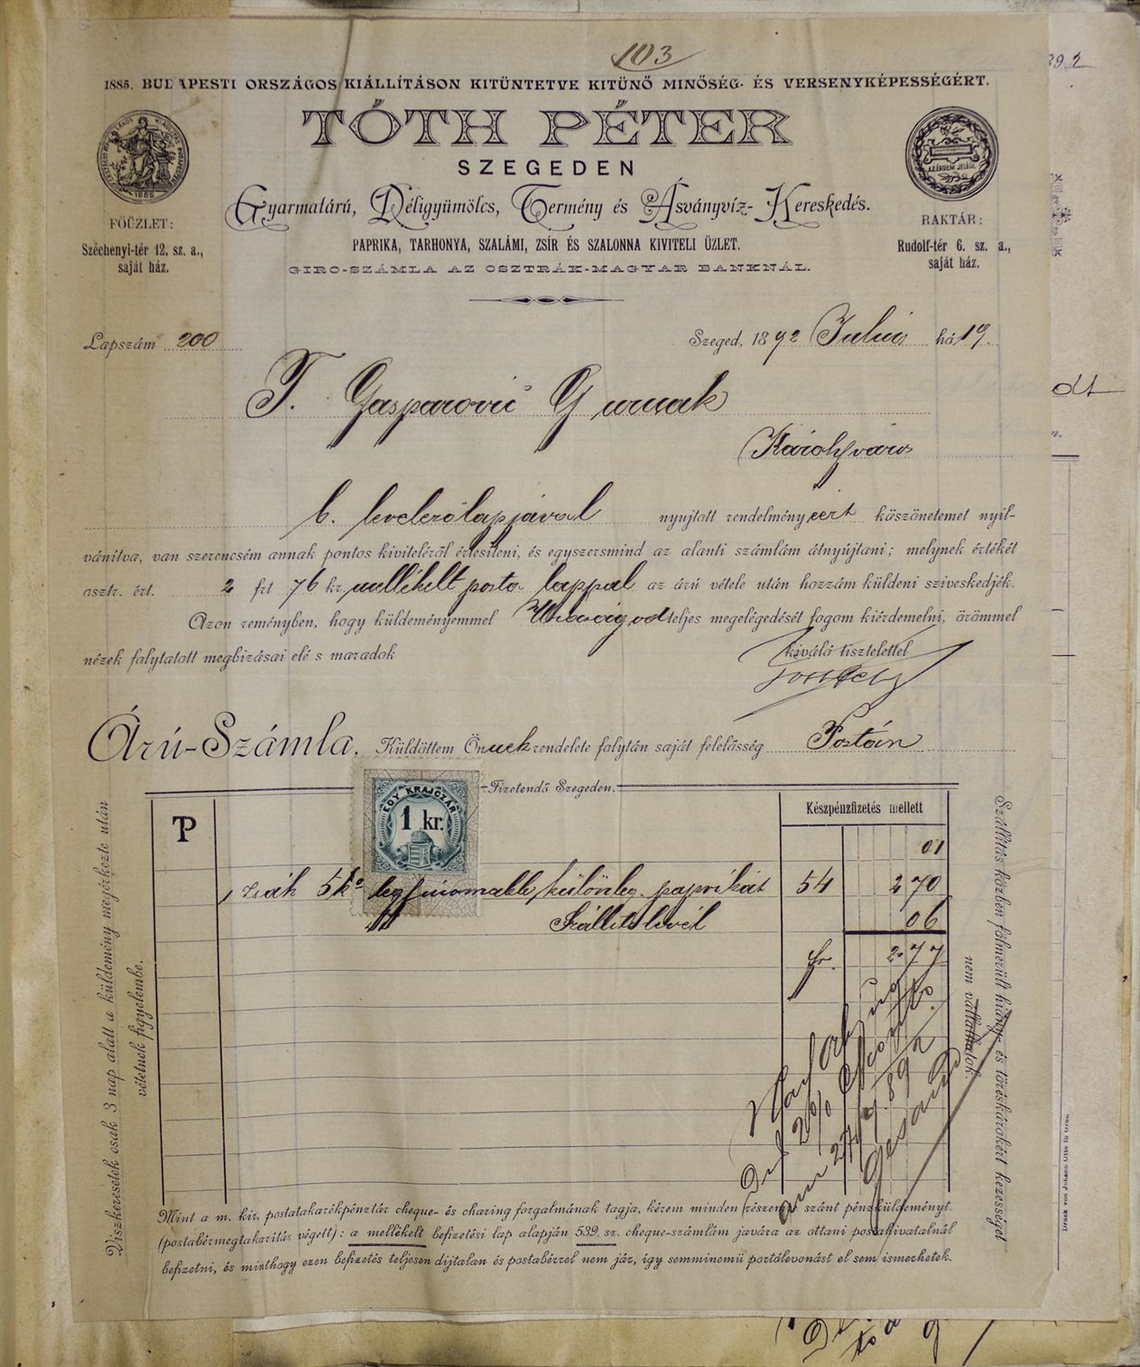 103
1885. BUDAPESTI ORSZÁGOS KIÁLLÍTÁSON KITÜNTETVE KITÜNŐ MINŐSÉG- ÉS VERSENYKÉPESSÉGÉRT.
392
TÓTH PÉTER
SZEGEDEN
Gyarmatárú, Déligyümölcs, Termény és Ásványvíz-Kereskedés.
FŐÜZLET:
Széchenyi-tér 12. sz. a.,
saját ház.
RAKTÁR:
Rudolf-tér 6. sz. a.,
saját ház.
PAPRIKA, TARHONYA, SZALÁMI, ZSÍR ÉS SZALONNA KIVITELI ÜZLET.
GIRO-SZÁMLA AZ OSZTRÁK-MAGYAR BANKNÁL.
Lapszám 200
Szeged, 1892 Julius hó 19.
T. Gasparović G urnak
Károlyváros
b. levelezőlapjával nyujtott rendelményeért köszönetemet nyil-
vánítva, van szerencsém annak pontos kiviteléről értesíteni, és egyszersmind az alanti számlám átnyújtani; melynek értékét
osztr. ért. 2 frt 76 kr mellékelt posta lappal az árú vétele után hozzám küldeni sziveskedjék.
Azon reményben, hogy küldeményemmel teljes megelégedését fogom kiérdemelni, örömmel
nézek folytatott megbizásai elé s maradok
kiváló tisztelettel
Árú-Számla. Küldöttem Önnek rendelete folytán saját felelősség Postán
Fizetendő Szegeden.
TP
EGY KRAJCZÁR
1 kr.
Készpénzfizetés mellett
01
1 zsák 5 ko legfinomabb különleg. paprikát 54 2 70
Szállitólevél 06
fr. 2.77
Viszkeresetek csak 3 nap alatt a küldemény megérkezte után
vétetnek figyelembe.
Szállítás közben fölmerült hiány- és töréskárokért kezességet
nem vállalhatok
Mint a m. kir. postatakarékpénztár cheque- és clearing forgalmának tagja, kérem minden részemre szánt pénzküldeményt
(postabérmegtakarítás végett): a mellékelt befizetési lap alapján 539. sz. cheque-számlám javára az ottani postahivatalnál
befizetni, és minthogy ezen befizetés teljesen díjtalan és postabérrel nem jár, így semminemű portólevonást el sem ismerhetek.